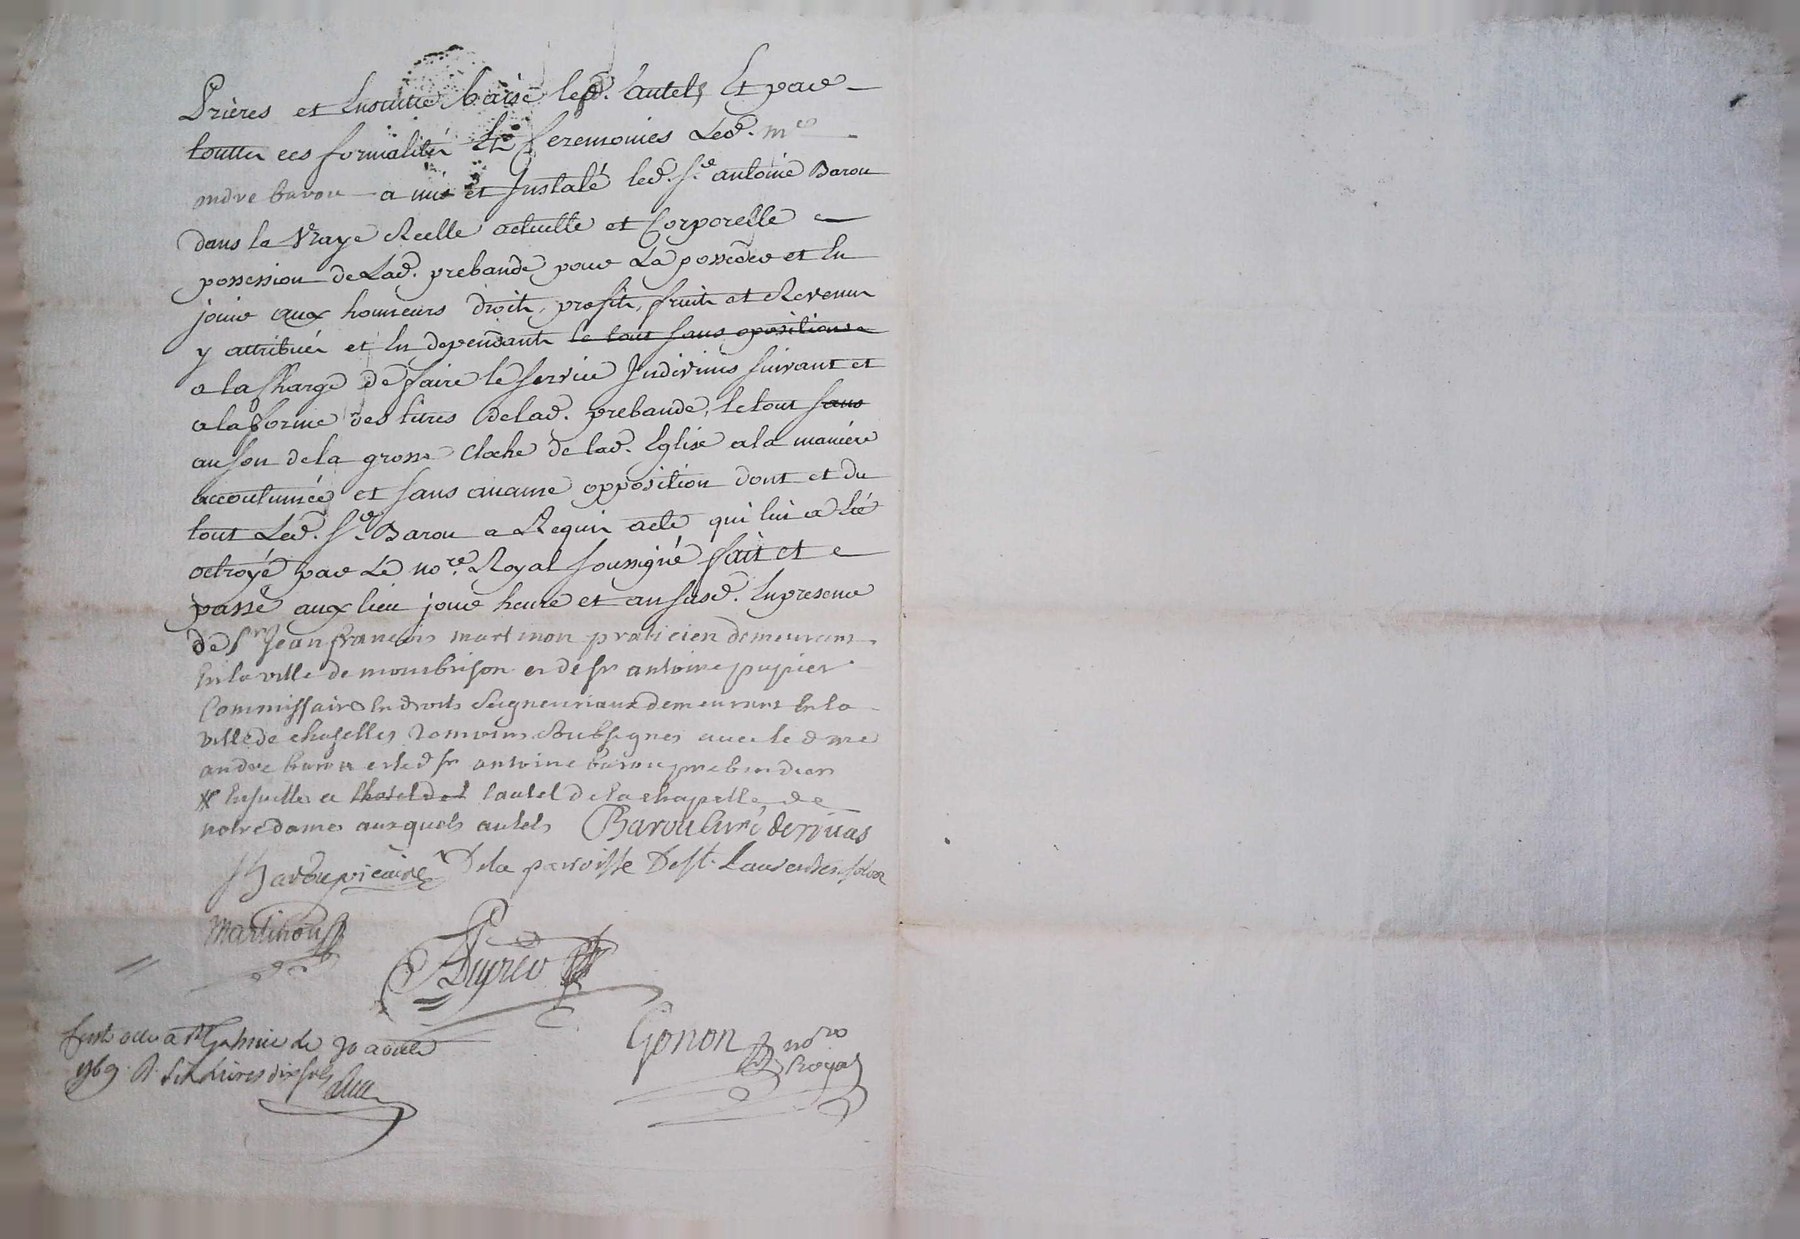 Prières et Ensuitte baisé lesd. autels Et par
touttes ces formalités Et Ceremonies Led. me
andre barou a mis et Jnstalé led. sr. antoine Barou
dans la Vraye Réelle actuelle et Corporelle
possession de Lad. prebande pour La posseder et En
jouir aux honneurs droits, profits, fruits et Revenus
y attribués et En dependants le tout sans oposition
a la Charge de faire le service Jndivinis suivant et
a la forme des titres de lad. prebande, le tout sans
au son de la grosse Cloche de lad. Eglise a la manière
accoutumée et sans aucune opposition dont et du
tout Led. sr. Barou a Requis acte qui lui a Eté
octroyé par Lé nore. Royal soussigné fait et
passé aux lieu jour heure et an susd. En presence
de sr Jean françois martinon praticien demeurant
En la ville de montbrison et de sr antoine pupier
Commissaire En droits Seigneuriaux demeurant En la
ville de chaselles temoins soubsignes avec le d me
andre barou et led sr antoine barou prebendier
lautel de la chapelle de
notre dame auxquels autels Barou Curé de rivas
vicaire De la parroisse De st. Laurent
Martinon
Pupier
Gonon nore
Royal
acte a St Galmier le 30 aoust
1769 R. six Livres dix sols